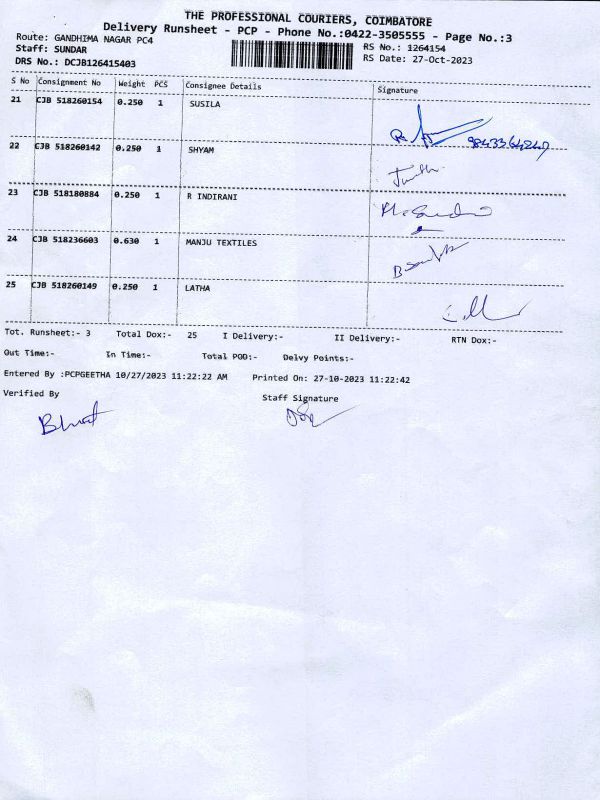 THE PROFESSIONAL COURIERS, COIMBATORE
Delivery Runsheet - PCP - Phone No.:0422-3505555 - Page No.:3
Route: GANDHIMA NAGAR PC4 RS No.: 1264154
Staff: SUNDAR RS Date: 27-Oct-2023
DRS No.: DCJB126415403
S No Consignment No Weight PCS Consignee Details Signature
21 CJB 518260154 0.250 1 SUSILA
9843364247
22 CJB 518260142 0.250 1 SHYAM
23 CJB 518180884 0.250 1 R INDIRANI
24 CJB 518236603 0.630 1 MANJU TEXTILES
25 CJB 518260149 0.250 1 LATHA
Tot. Runsheet:- 3 Total Dox:- 25 I Delivery:- II Delivery:- RTN Dox:-
Out Time:- In Time:- Total POD:- Delvy Points:-
Entered By :PCPGEETHA 10/27/2023 11:22:22 AM Printed On: 27-10-2023 11:22:42
Verified By Staff Signature